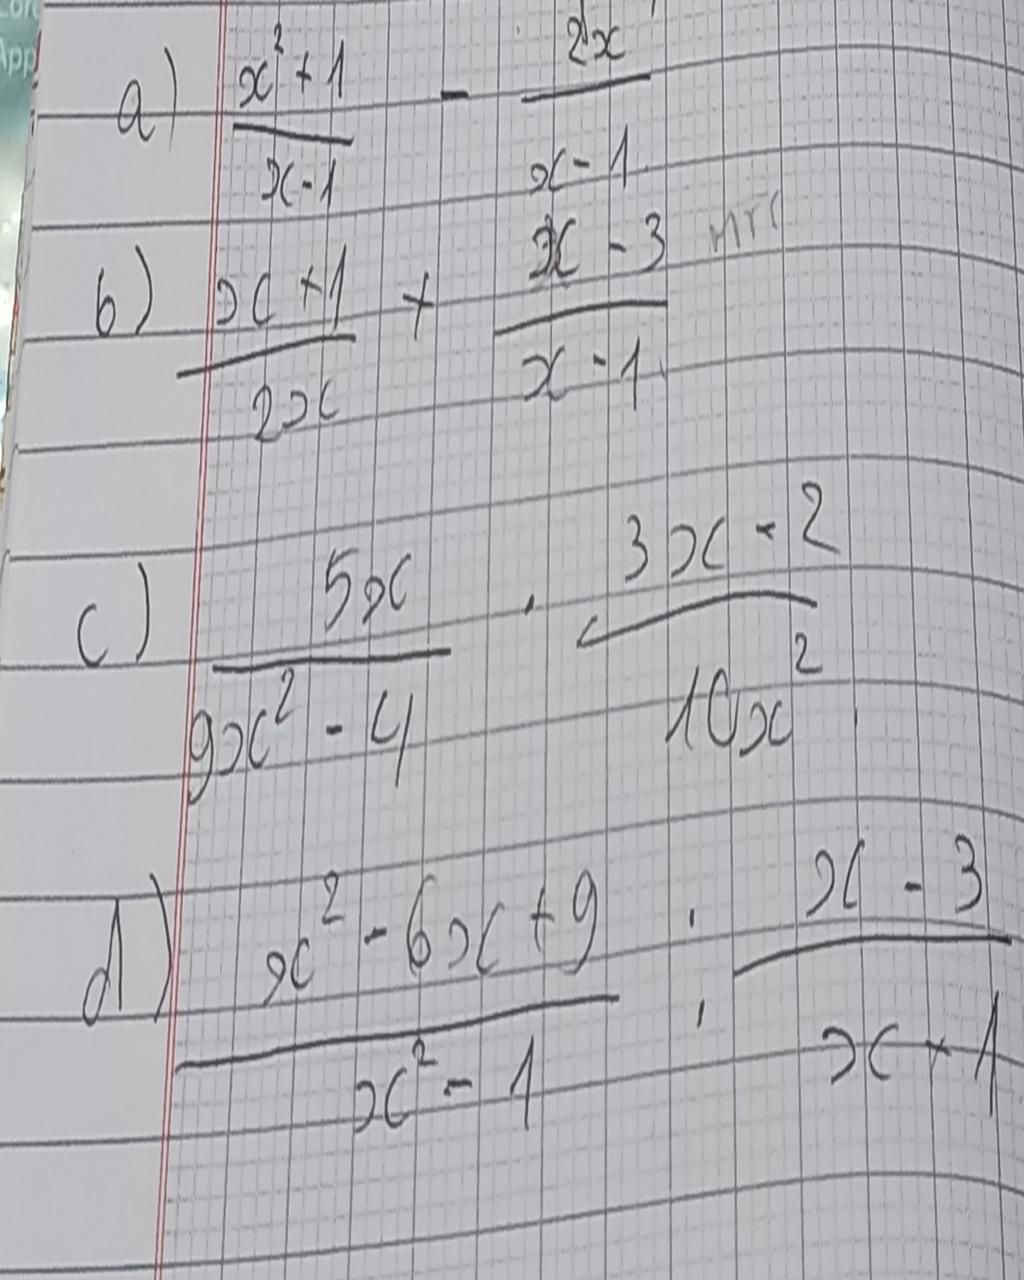 a) x²+1 / x-1 - 2x / x-1
b) x+1 / 2x + x-3 / x-1
c) 5x / 9x²-4 · 3x-2 / 10x²
d) x²-6x+9 / x²-1 : x-3 / x+1